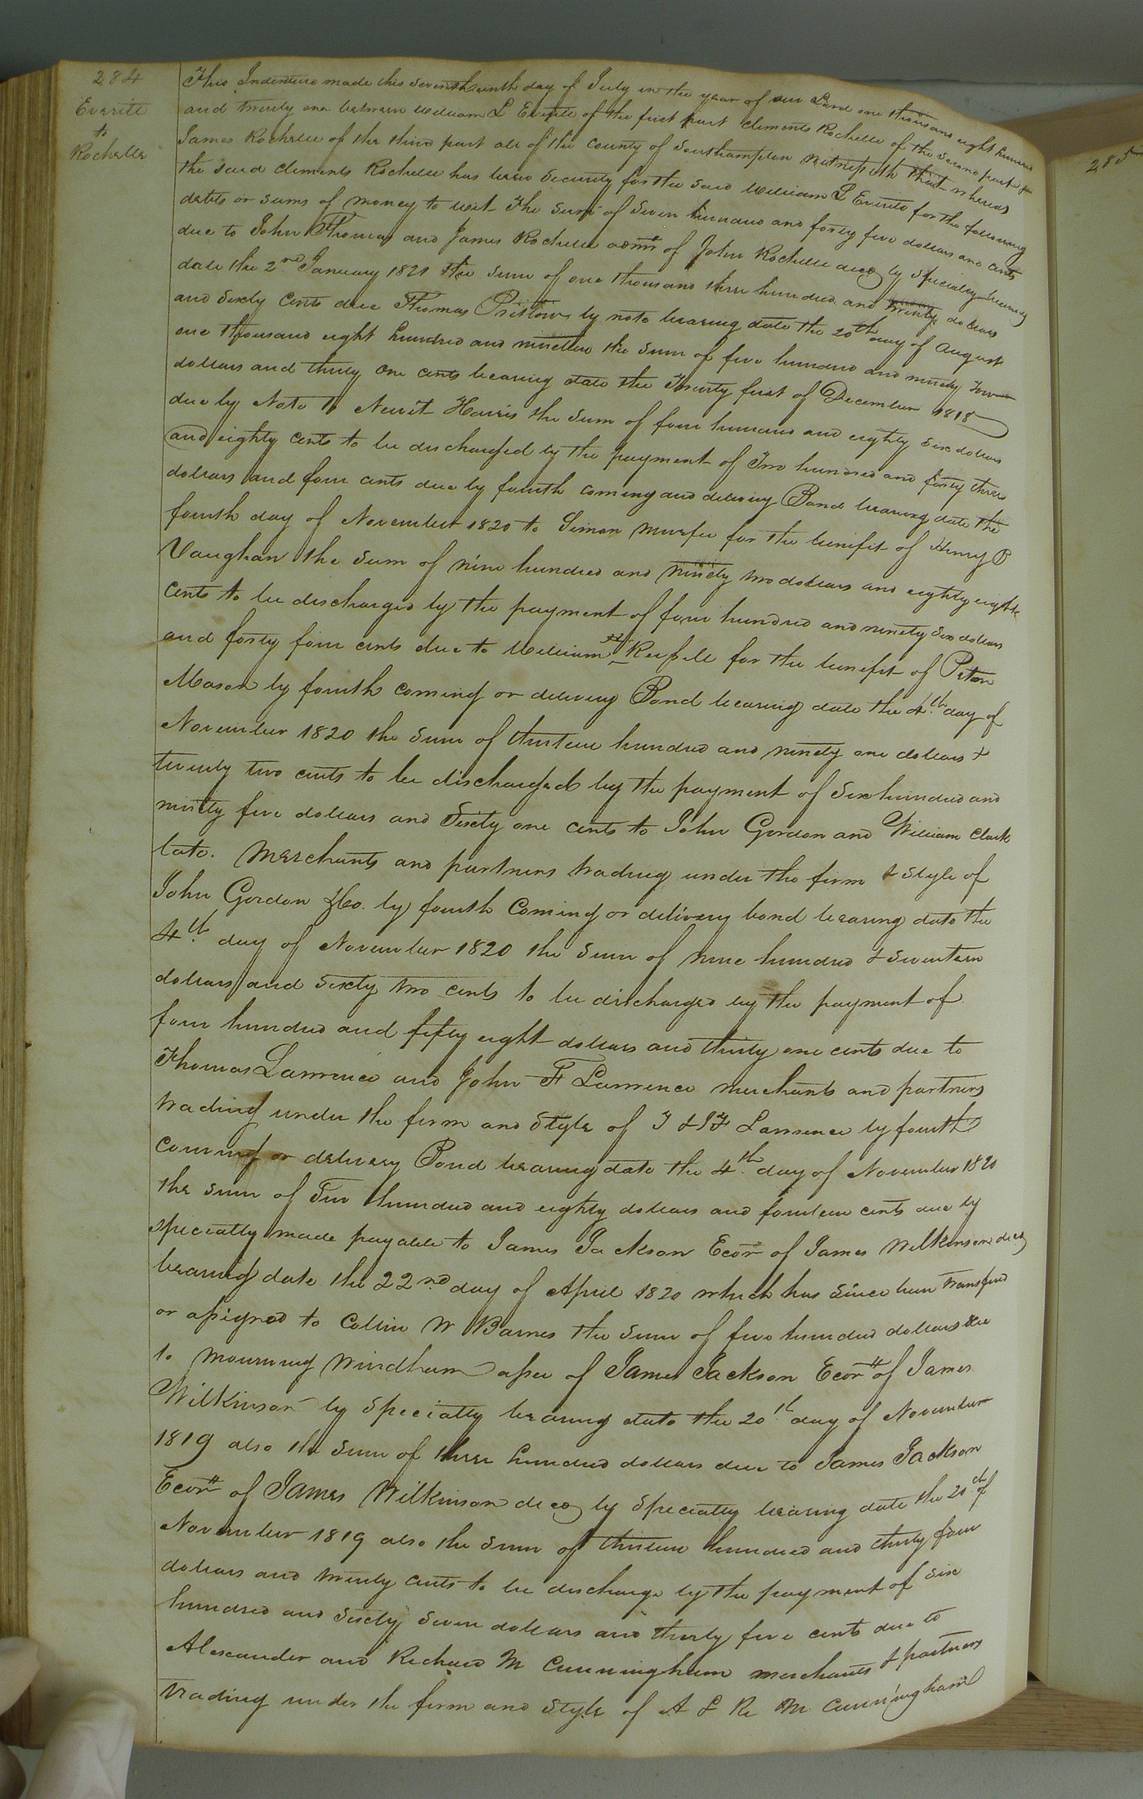 284
Everitt
to
Rochelle
This Indenture made this seventeenth day of July in the year of our Lord one thousand eight hundred
and twenty one between William L Everitt of the first part Clements Rochelle of the second part &
James Rochelle of the third part all of the County of Southampton Witnesseth that whereas
the said Clements Rochelle has become Security for the said William L Everitt for the following
debts or sums of money to wit The sum of seven hundred and forty five dollars and cents
due to John Thomas and James Rochelle admrs of John Rochelle decd by specialty bearing
date the 2nd January 1821 the sum of one thousand three hundred and twenty dollars
and sixty cents due Thomas Pristow by note bearing date the 20th day of August
one thousand eight hundred and nineteen the sum of five hundred and ninety two
dollars and thirty one cents bearing date the Twenty first of December 1818
due by Note to Newit Harris the sum of four hundred and eighty six dollars
and eighty cents to be discharged by the payment of Two hundred and forty three
dollars and four cents due by fourth coming and delivery Bond bearing date the
fourth day of November 1820 to Simon Murfee for the benifit of Henry B
Vaughan the sum of nine hundred and ninety two dollars and eighty eight
cents to be discharged by the payment of four hundred and ninety six dollars
and forty four cents due to William H Reifsell for the benifit of Peton
Mason by fourth coming or delivery Bond bearing date the 4th day of
November 1820 the sum of thirteen hundred and ninety one dollars &
twenty two cents to be discharged by the payment of six hundred and
ninety five dollars and Sixty one cents to John Gordon and William Clark
late. Merchants and partners trading under the firm & style of
John Gordon & Co. by fourth Coming or delivery bond bearing date the
4th day of November 1820 the sum of nine hundred & seventeen
dollars and sixty two cents to be discharged by the payment of
four hundred and fifty eight dollars and thirty one cents due to
Thomas Lawrence and John F Lawrence merchants and partners
trading under the firm and Style of T & J F Lawrence by fourth
coming or delivery Bond bearing date the 4th day of November 1820
the sum of hundred and eighty dollars and fourteen cents due by
specialty made payable to James Jackson Ecor of James Wilkinson decd
bearing date the 22nd day of April 1820 which has since been transfered
or assigned to Collin W Barnes the sum of five hundred dollars due
to Mourning Windham assee of James Jackson Ecor of James
Wilkinson by Specialty bearing date the 20th day of November
1819 also the sum of three hundred dollars due to James Jackson
Ecor of James Wilkinson decd by Specialty bearing date the 20th of
November 1819 also the sum of thirteen hundred and thirty four
dollars and twenty cents to be discharge by the payment of six
hundred and sixty seven dollars and thirty five cents due to
Alexander and Richard M Cunningham merchants & partners
trading under the firm and style of A & R M Cunningham
285